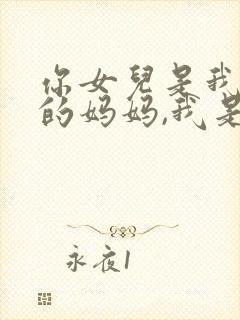 你女兒是我
的妈妈,我是
永夜1